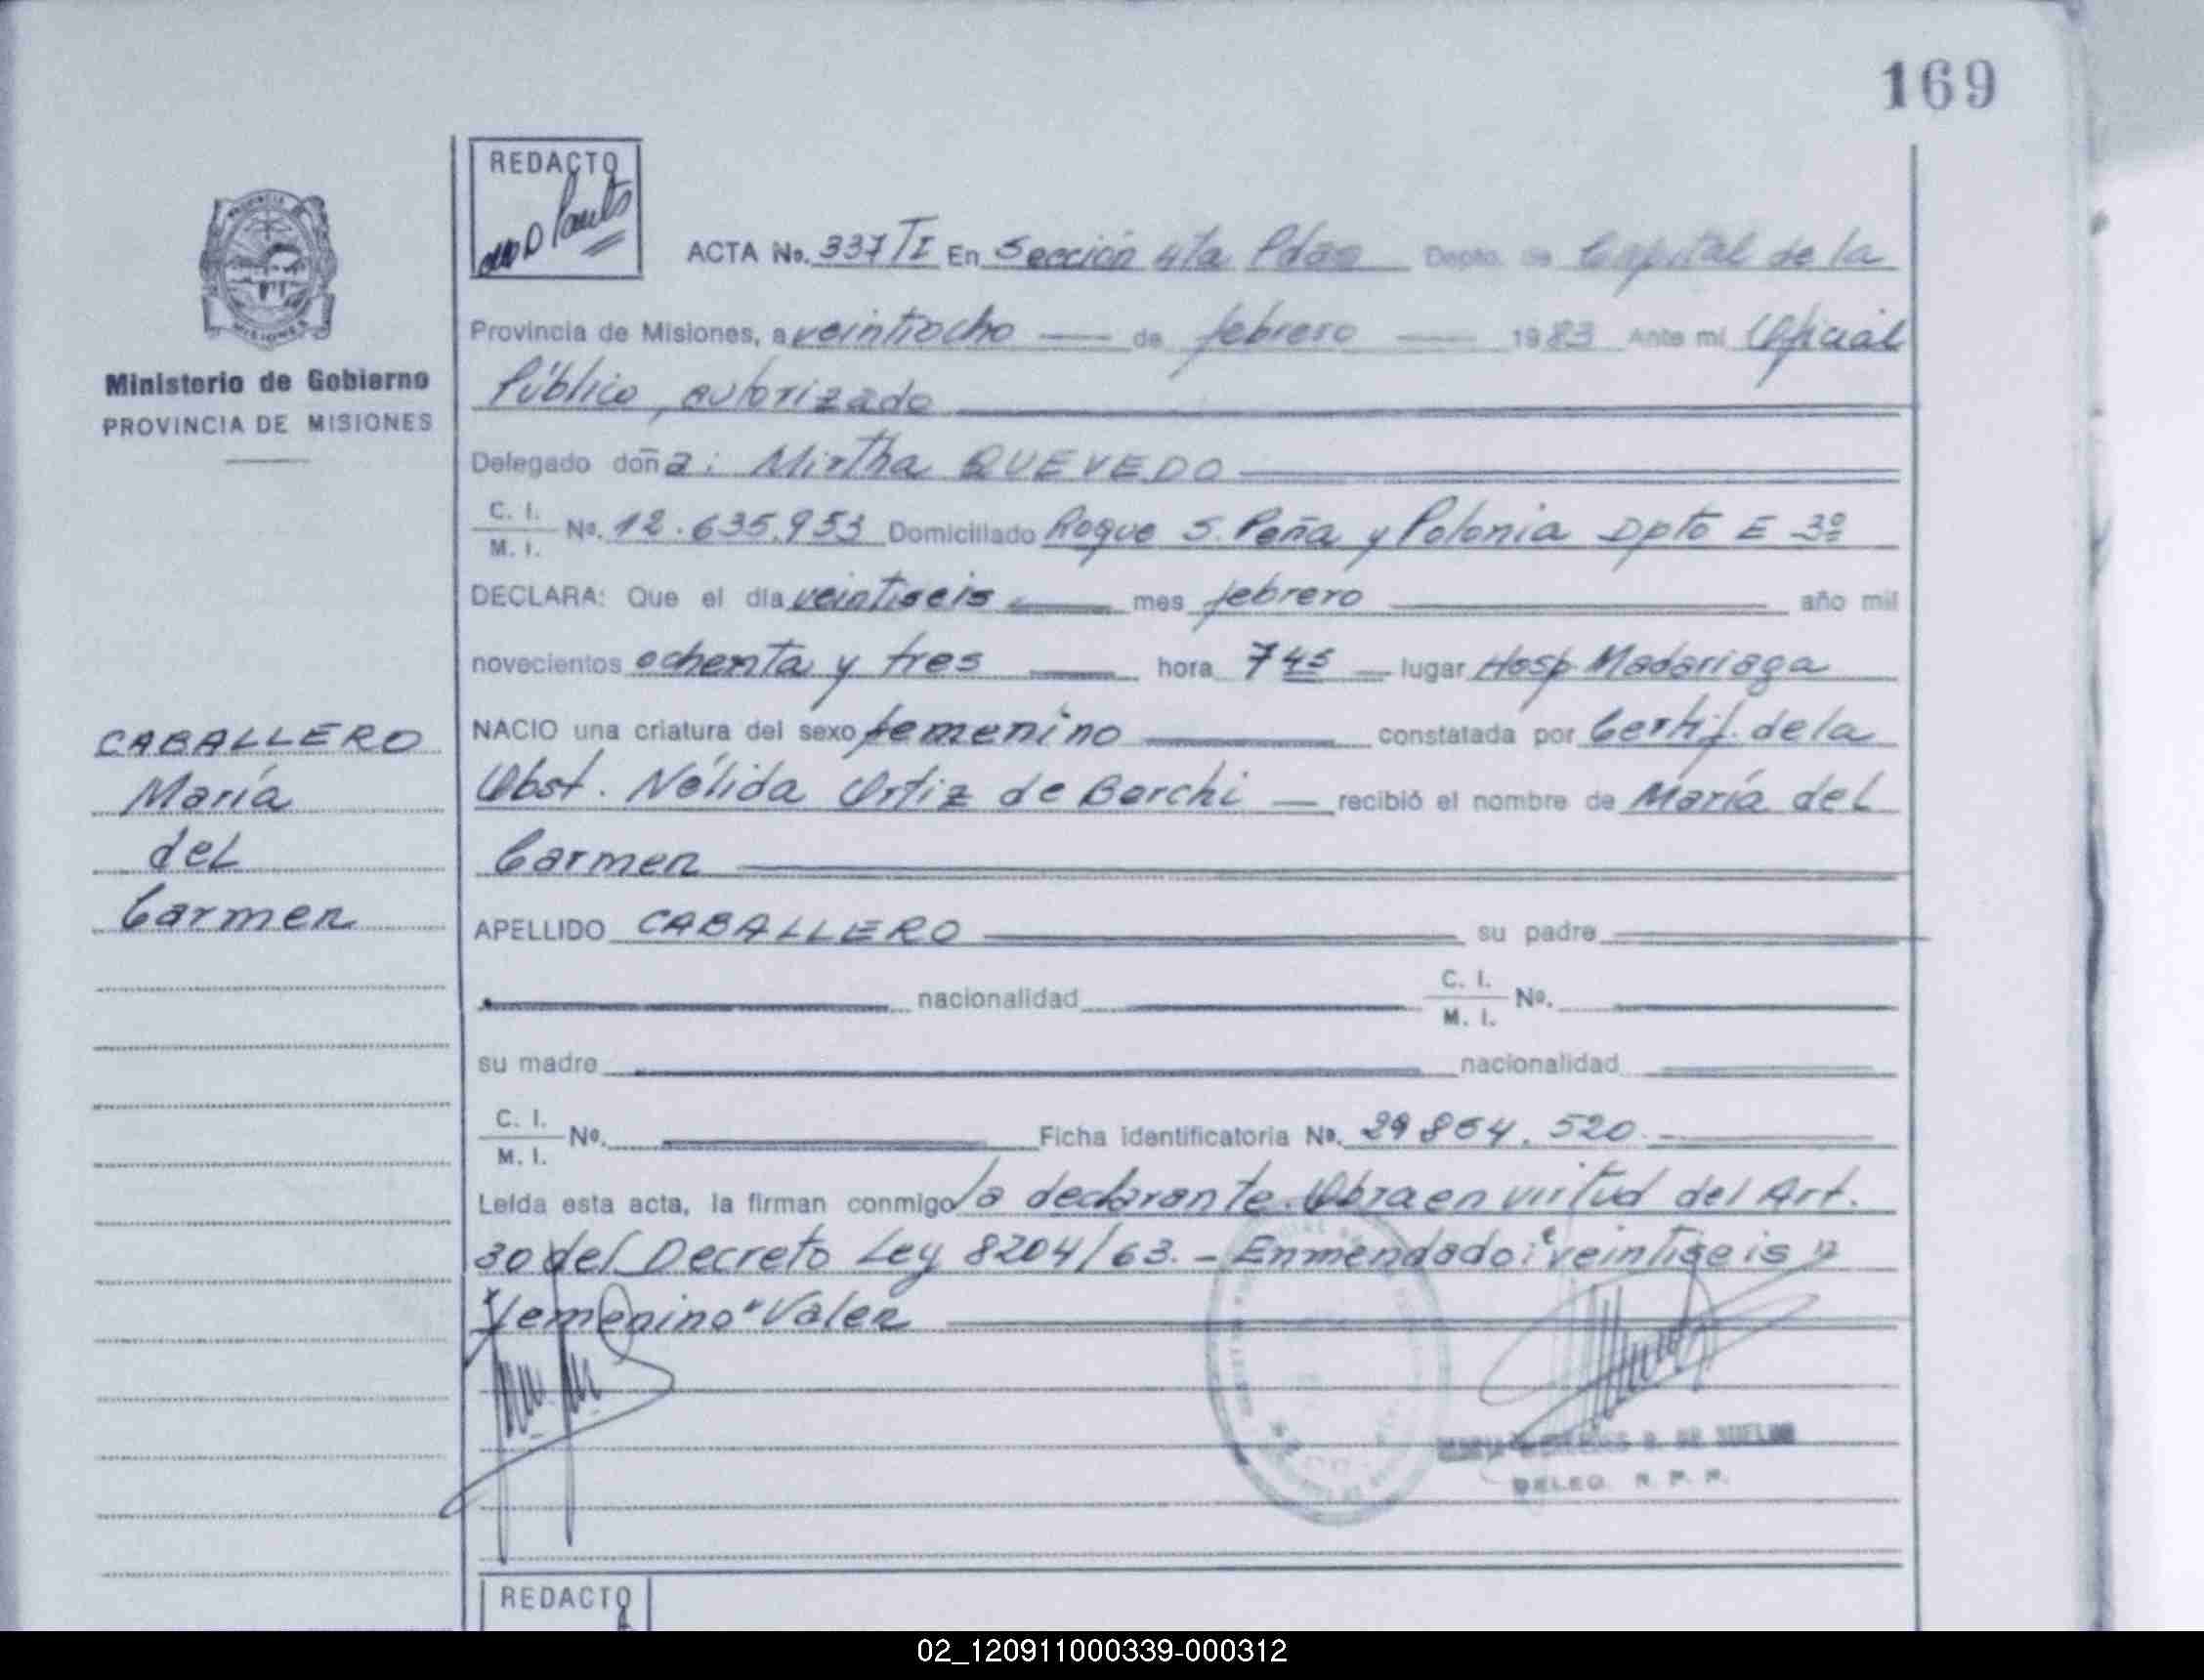 169
REDACTO
ACTA No. 337/I En Sección 4ta Pdas Depto. de Capital de la
Provincia de Misiones, a veintiocho de febrero 1983 Ante mi Oficial
Público, autorizado
Ministerio de Gobierno
PROVINCIA DE MISIONES
Delegado doña: Mirtha QUEVEDO
C. I.
M. I. No. 12.635.953 Domiciliado Roque S. Peña y Polonia Dpto E 3º
DECLARA: Que el día veintiseis mes febrero año mil
novecientos ochenta y tres hora 7 45 lugar Hosp. Madariaga
NACIO una criatura del sexo femenino constatada por Certif. de la
Obst. Nélida Ortiz de Borchi recibió el nombre de María del
Carmen
CABALLERO
María
del
Carmen
APELLIDO CABALLERO su padre
nacionalidad C. I.
M. I. No.
su madre nacionalidad
C. I.
M. I. No. Ficha identificatoria No. 29 864.520
Leida esta acta, la firman conmigo la declarante. Obra en virtud del Art.
30 del Decreto Ley 8204/63. - Enmendado: "veintiseis"
"femenino" Valen
DELEG. R. P. P.
REDACTO
02_120911000339-000312